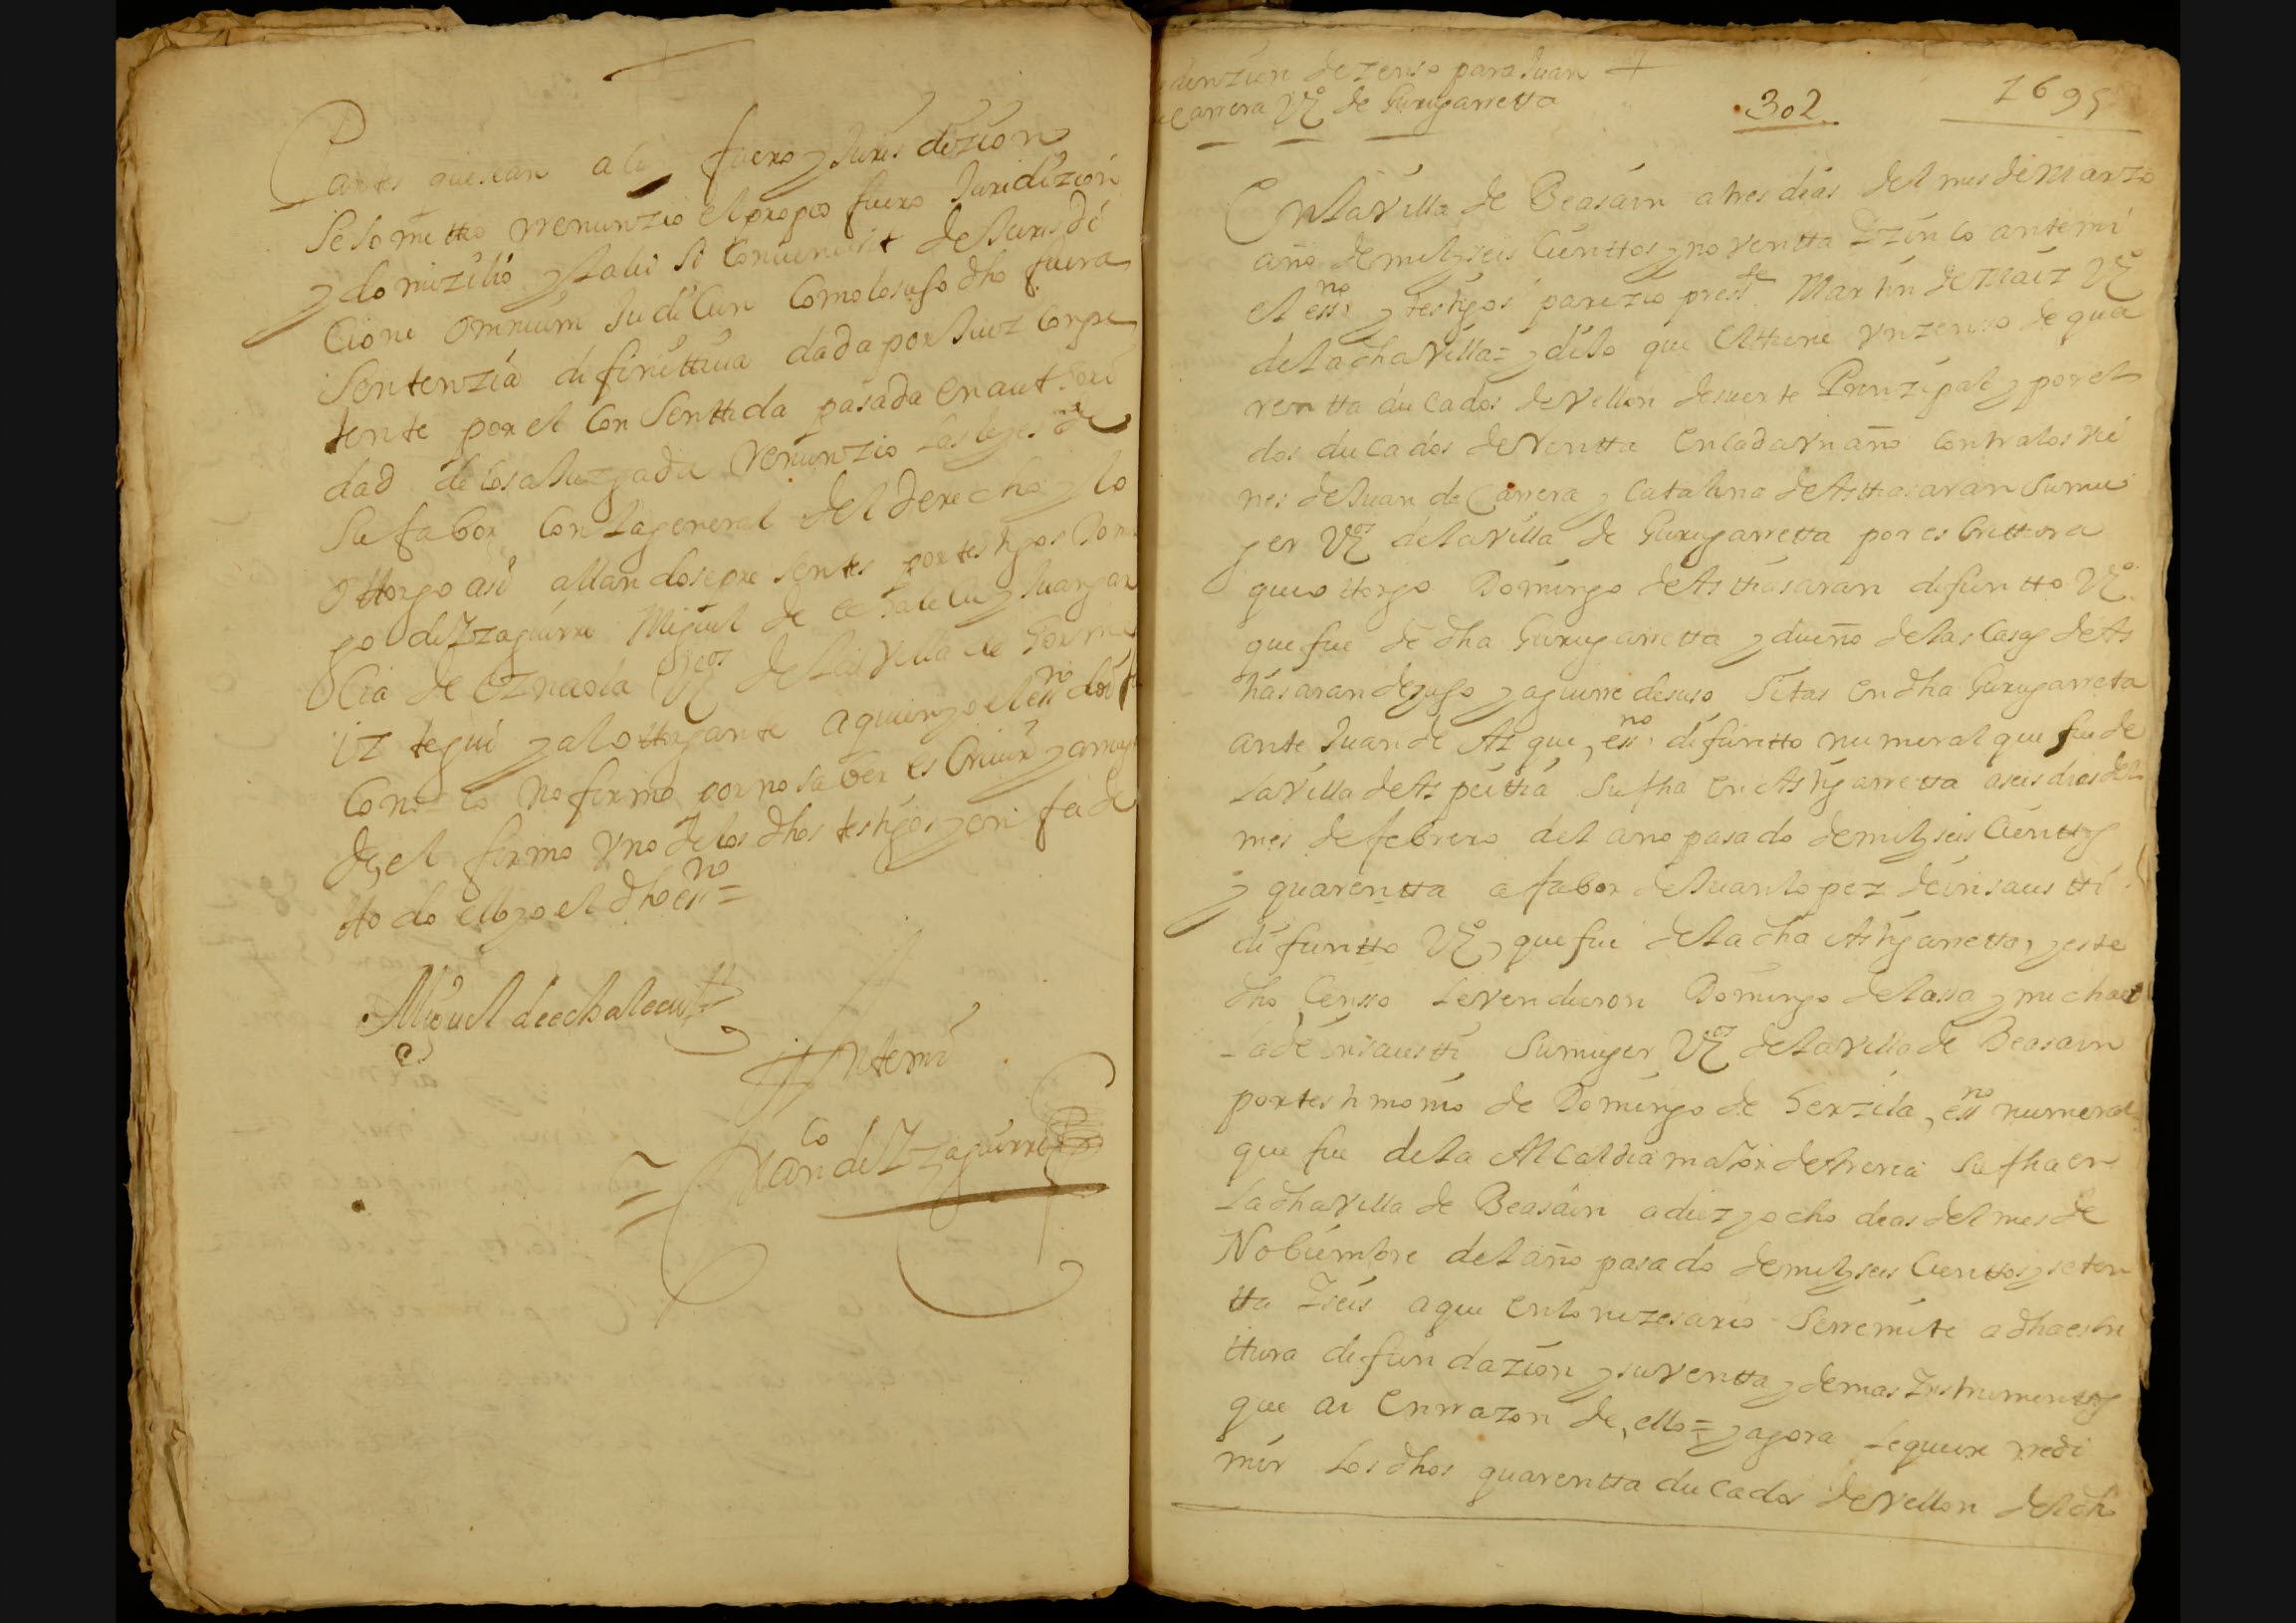 Partes que sean a cu fuero y Juris dizion
se sometio rrenunzio el propio fuero Juridizion
y domizilio y la lei si Convenerit de Jurisdi
Cione omnium Judicun Como lo suso dho fuera
Sentenzia difinittiva dada por Juez Conpe
tente por el Con Senttida pasada en autthori
dad de Cosa Juzgada renunzio las leyes de
su fabor Con la general del derecho y lo
ottorgo asi allandose presentes por testigos Domin
go de Yzaguirre Miguel de echaleCu y Juan gar
Cia de eznaola Vezos de la Villa de Gorma
iz tegui y al ottorgante a quien yo el essno doi fe
Conozco no firmo por no saber es Crivir y a rruego
de el firmo uno de los dhos testigos y en fee de
tto do ello yo el dho essno =
Miguel de echalecu
Antemi
Franco de Yzaguirre
denzion de zenso para Juan
de Carrera Vº de Gurugarretta
302
1695
En la Villa de Beasain a tres dias del mes de Marzo
año de mil y seis Cienttos y noventta Y zinco ante mi
el essno y testigos parezio pressте Martin de Maiz Vº
de la dha Villa = y dijo que el ttiene un zenso de qua
rentta ducados de Vellon de suerte Prinzipal y por el
dos ducados de Rentta en Cada un año Contra los vie
nes de Juan de Carrera y Catalina de Asttiasaran su mu
ger Vºs de la Villa de Gurugarretta por es Crittura
que ottorgo Domingo de Asttiasaran difuntto Vº
que fue de dha Gurugarretta y dueño de las Casas de As
tiasaran de yuso y aguirre de suso Sitas en dha Gurugarreta
ante Juan de Az que, essno difuntto numeral que fue de
la Villa de Az peittia su fha en Astigarretta a seis dias del
mes de febrero del ano pasado de mil y seis Cienttos
y quarentta a fabor de Juan lopez de insaus tti
difuntto Vº que fue de la dha Astigarretta y este
dho Censso le vendieron Domingo de lassa y michae
la de insaustti su muger Vºs de la Villa de Beasain
por testimonio de Domingo de Gerzila, essno numeral
que fue de la Alcaldia maior de Areria su fha en
la dha Villa de Beasain a diez y ocho dias del mes de
Nobiembre del año pasado de mil y seis Cienttos y seten
tta Y seis a que en lo nezesario se rremite a dha escri
ttura de fundazion y su Ventta y demas Ynstrumenttos
que ai en rrazon de, ello = y agora le quiere rredi
mir los dhos quarentta ducados de Vellon del dho